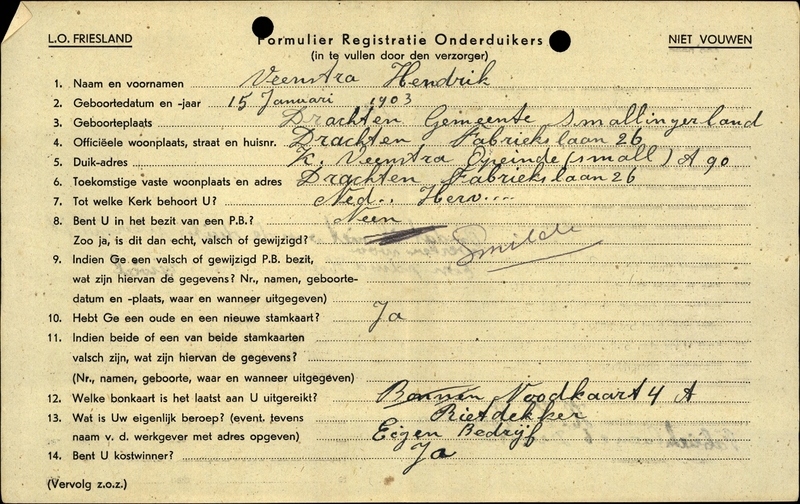 L.O. FRIESLAND
Formulier Registratie Onderduikers
NIET VOUWEN
(in te vullen door den verzorger)
1. Naam en voornamen Veenstra Hendrik
2. Geboortedatum en -jaar 15 Januari 1903
3. Geboorteplaats Drachten Gemeente Smallingerland
4. Officiëele woonplaats, straat en huisnr. Drachten Fabriekslaan 26
5. Duik-adres K. Veenstra Opeinde (small) A 90
6. Toekomstige vaste woonplaats en adres Drachten Fabriekslaan 26
7. Tot welke Kerk behoort U? Ned.. Herv....
8. Bent U in het bezit van een P.B.? Neen
Zoo ja, is dit dan echt, valsch of gewijzigd? Smilde
9. Indien Ge een valsch of gewijzigd P.B. bezit,
wat zijn hiervan de gegevens? Nr., namen, geboorte-
datum en -plaats, waar en wanneer uitgegeven)
10. Hebt Ge een oude en een nieuwe stamkaart? Ja
11. Indien beide of een van beide stamkaarten
valsch zijn, wat zijn hiervan de gegevens?
(Nr., namen, geboorte, waar en wanneer uitgegeven)
12. Welke bonkaart is het laatst aan U uitgereikt? Bonnen Noodkaart 4 A
13. Wat is Uw eigenlijk beroep? (event. tevens Rietdekker
naam v. d. werkgever met adres opgeven) Eigen Bedrijf
14. Bent U kostwinner? Ja
(Vervolg z.o.z.)